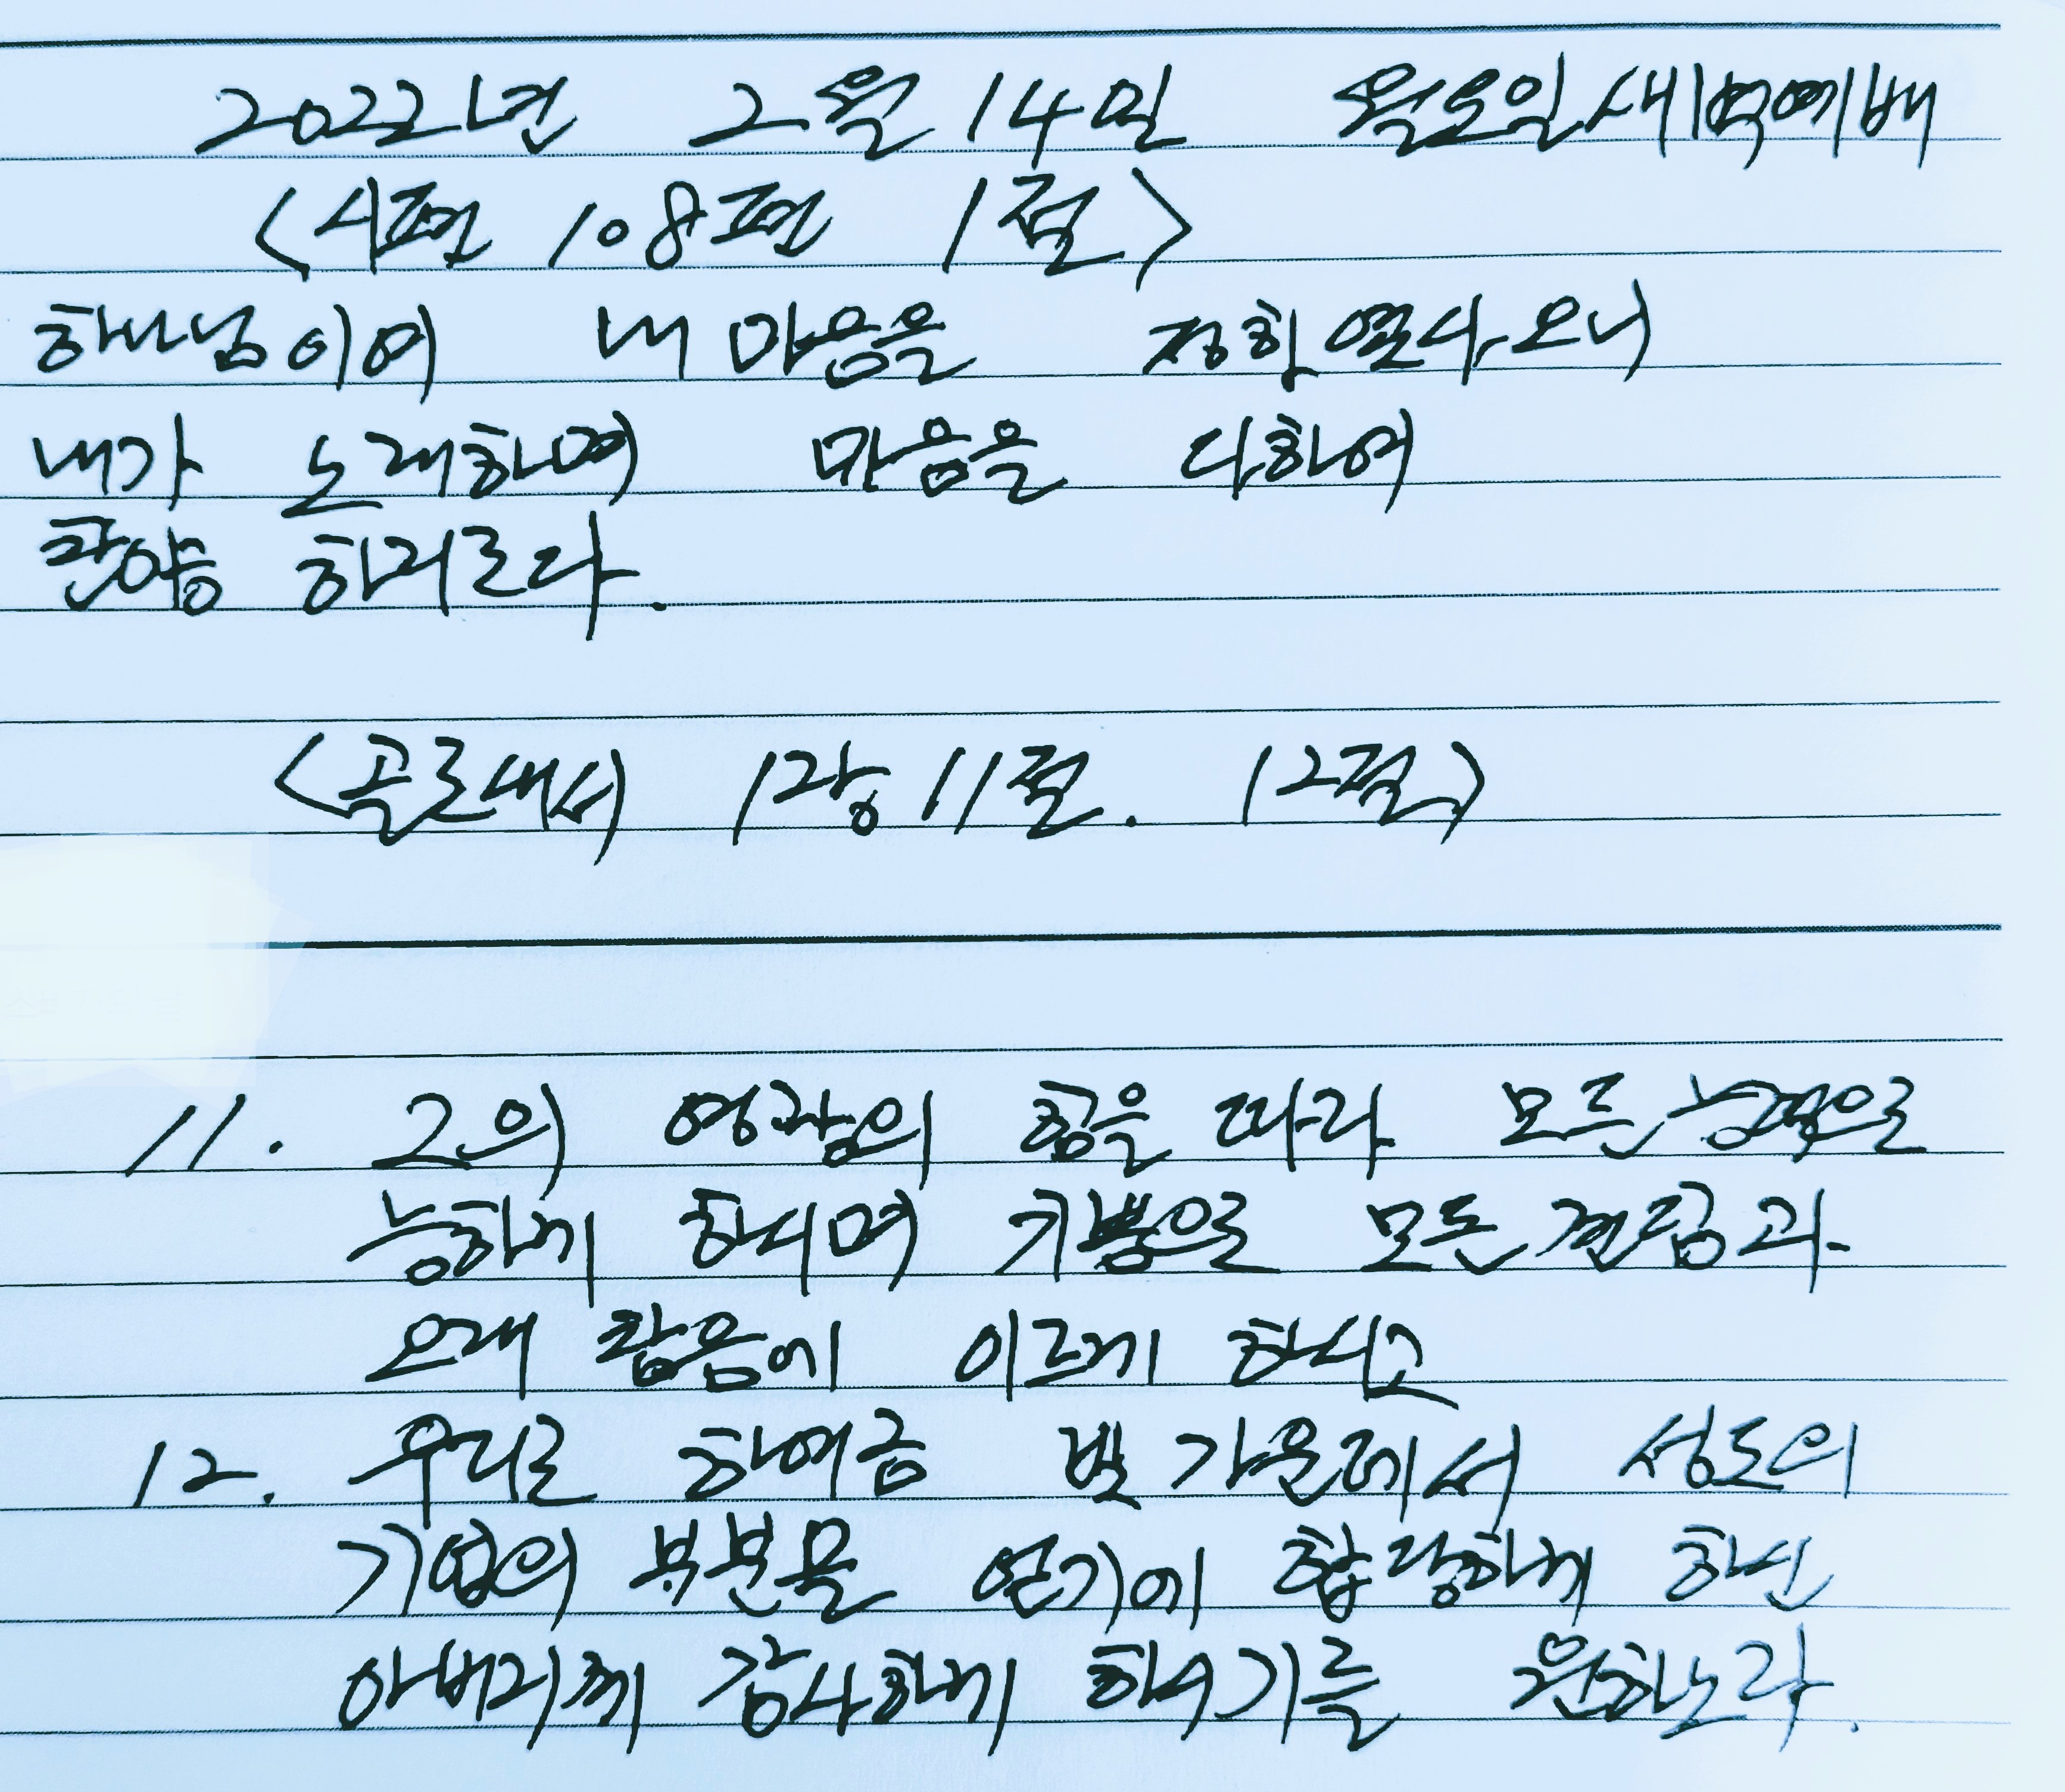 2022년 2월 14일 월요일새벽예배
<시편 108편 1절>
하나님이여 내 마음을 정하였사오니
내가 노래하며 마음을 다하여
찬양 하리로다.
<골로새서 1장 11절. 12절>
11. 그의 영광의 힘을 따라 모든 능력으로
능하게 하시며 기쁨으로 모든 견딤과
오래 참음에 이르게 하시고
12. 우리로 하여금 빛 가운데서 성도의
기업의 부분을 얻기에 합당하게 하신
아버지께 감사하게 하시기를 원하노라.